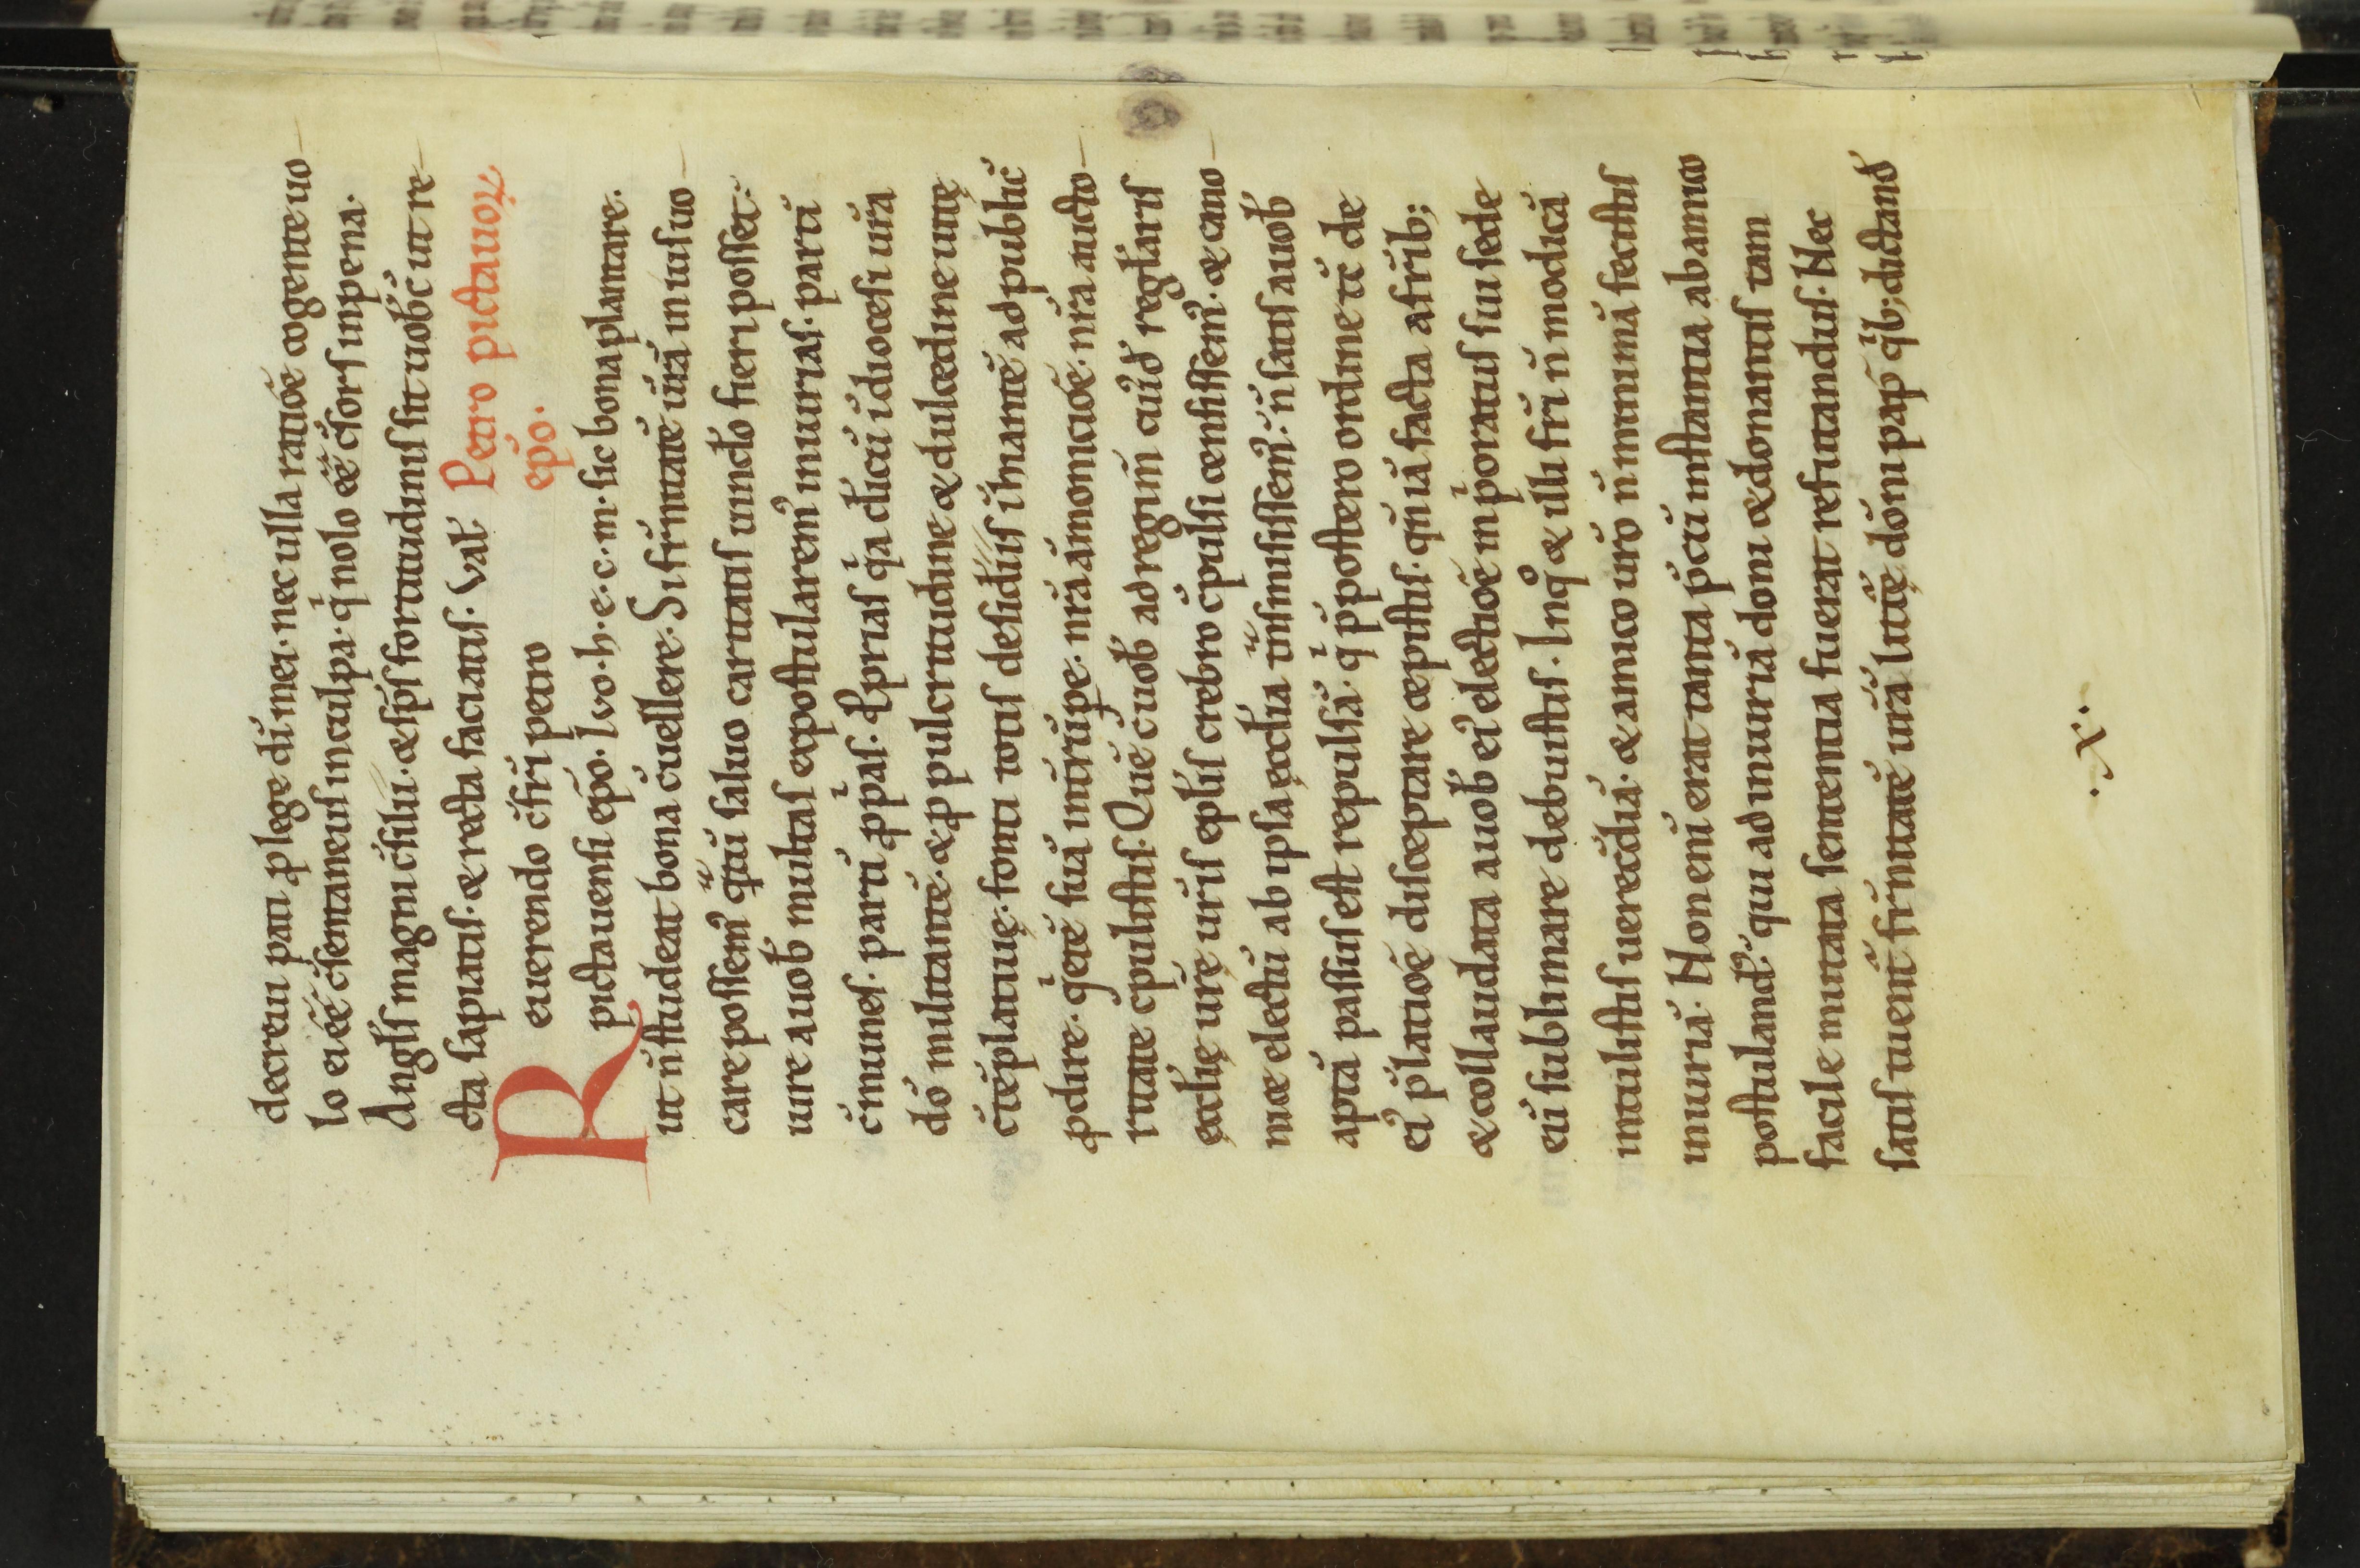 decreui pati ꝓ lege dī mei· nec ulla ratiōē cogente uo-
lo ei ēē c̄sentaneus in culpa· q̄ nolo ēē c̄sors in pena·
Anglis magni c̄silii· & sp̄s fortitudinis sit uobc̄ ut re-
cta sapiatis· & recta faciatis· Val̄ Petro pictauoꝝ
euerendo c̄fr̄i petro ep̄o·
R pictauensi ep̄o· Iuo· h· e· c· m· sic bona plantare·
ut n̄ studeat bona c̄uellere· Si fr̄nitatē ur̄ā in iusuo-
care possem᾽ q̄tū saluo caritatis uinclo fieri posset·
iure a uob̄ multas expostularem᾽ iniurias· partī
c̄munes· partī ꝓpas· Ꝓprias q̄a cl̄icū ī diocesi ur̄a
dō militantē· & ꝓ pulcritudine & dulcedine uitę
c̄tēplatiuę· fonti totis desidiis īhiantē ad public̄
ꝓdire· q̄etē suā int̄rūpe· nr̄ā āmonicōē· nr̄a aucto-
ritate c̄pulistis· Quē c̄ uob̄ ad regim̄ cui᾽d̄ regl̄aris
ęccl̄ię ur̄ę ur̄is epl̄is crebro c̄pulsi c̄ensissem᾽· & cano-
nice electū ab ipsa ęccl̄ia t̄nsmisissem᾽· n̄ satis a uob̄
aptā passus est repulsā· q̄ p̄postero ordine tc̄ de
ei᾽ p̄latiōē disceptare cepistis· qn̄ iā facta a fr̄ib;
& collaudata a uob̄ ei᾽ electiōē in p̄oratus sui sede
eū sublimare debuistis· Inq̊ & illi fr̄i n̄ modicā
intulistis uerecd̄iā· & amico ur̄o n̄ minimā fecistis
iniuriā· Non enī erat tanta p̄cū instantia ab amico
postuland᾽· qui ad iniuriā doni & donantis tam
facile mutata sententia fuerat refutandus· Nec
satis tuem̄ fr̄nitatē ur̄ā litīę dōni pap̄ q̄b; dictand̄
·X·